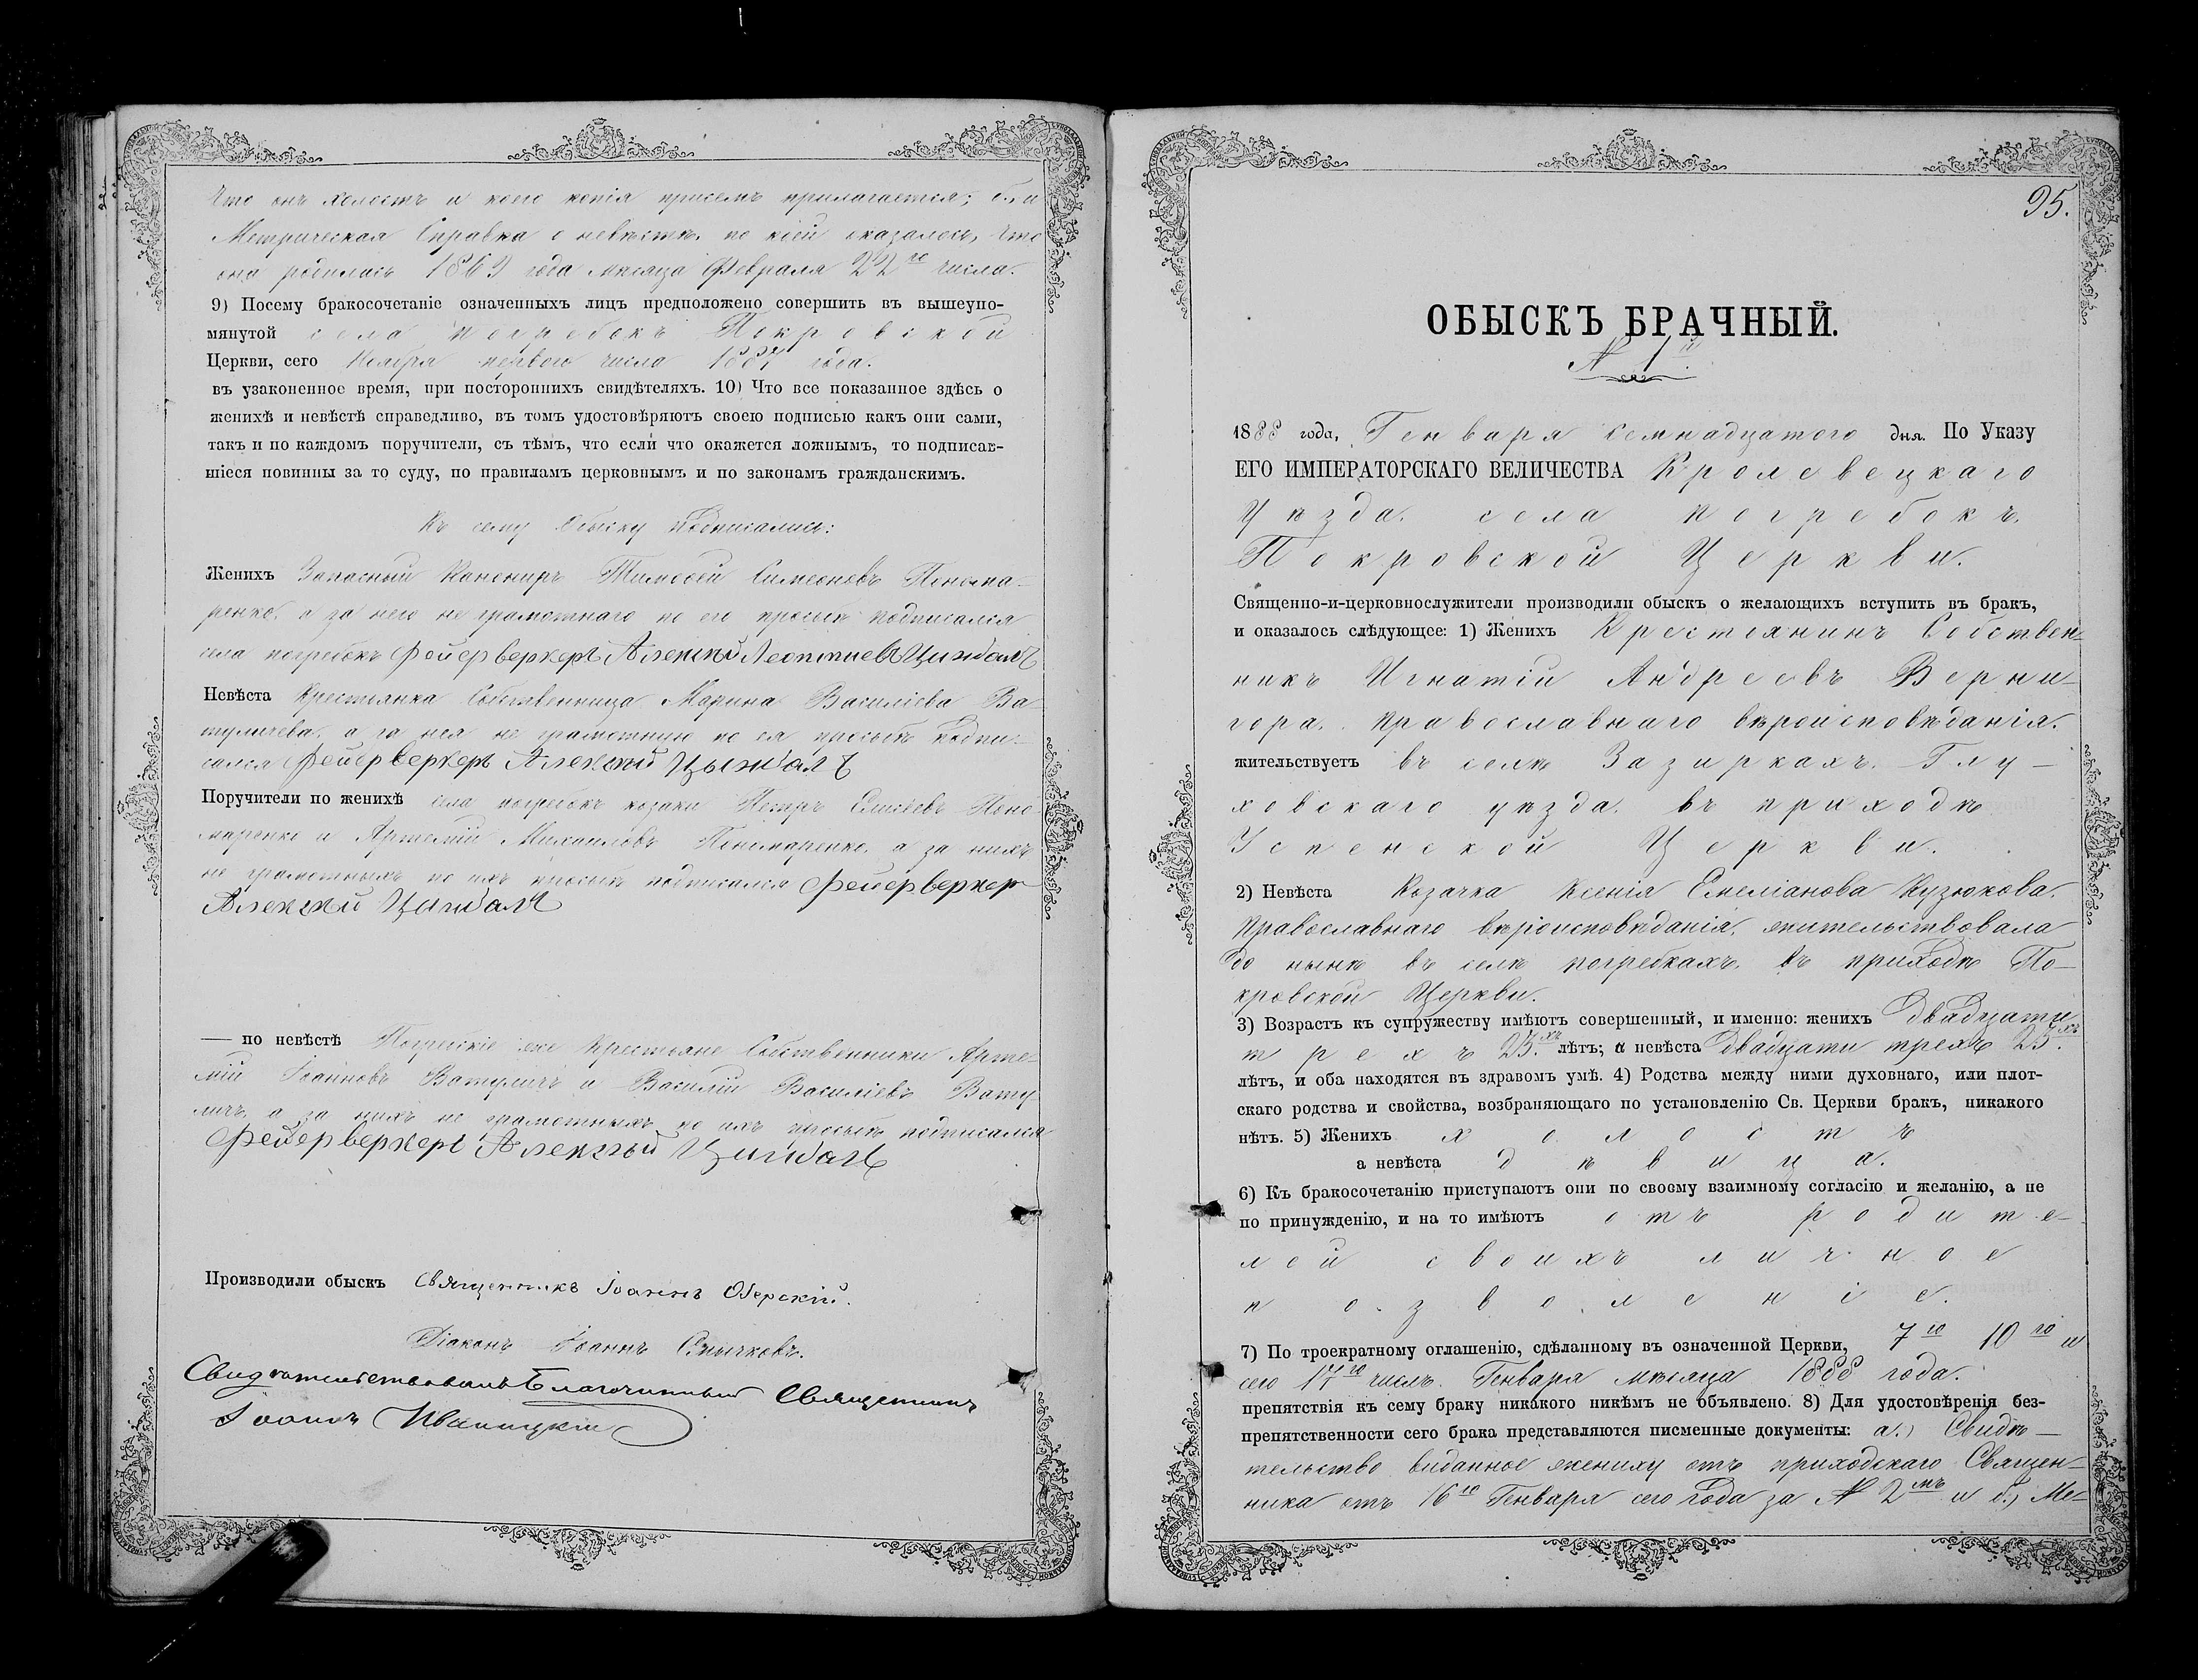 что онъ холостъ и коего копія присемъ прилагается; б., и
Метрическая Справка о невѣстѣ, по коей оказалось, что
она родилась 1869 года Мѣсяца Февраля 22го числа.
9) Посему бракосочетаніе означенныхъ лицъ предположено совершить въ вышеупо-
мянутой села Погребокъ Покровской
Церкви, сего Ноября первого числа 1887 года.
въ узаконенное время, при постороннихъ свидѣтеляхъ. 10) Что все показанное здѣсь о
женихѣ и невѣстѣ справедливо, въ томъ удостовѣряютъ своею подписью какъ они сами,
такъ и по каждомъ поручители, съ тѣмъ, что если что окажется ложнымъ, то подписав-
шіеся повинны за то суду, по правиламъ церковнымъ и по законамъ гражданскимъ.
Къ сему Обыску подписались:
Женихъ Запасный Канониръ Тимофей Симеоновъ Понома-
ренко, а за него не грамотнаго по его просьбѣ подписался
села погребокъ Фейерверкеръ Алексѣй Леонтиевъ
Невѣста Крестьянка Собственница Марина Василіева Ва-
туличева, а за нея не грамотную по ея просьбѣ подпи-
сался фейерверкеръ Алексѣй
Поручители по женихѣ села погребокъ козаки Петръ Елисѣевъ Поно-
маренко и Артемій Михаиловъ Пономаренко, а за нихъ
не грамотныхъ по ихъ просьбѣ подписался фейерверкер
Алексѣй
— по невѣстѣ Погребскіе же Крестьяне Собственники Арте-
мій Іоанновъ Ватуличъ и Василій Василіевъ Вату-
личъ, а за нихъ не грамотныхъ по ихъ просьбѣ подписался
фейерверкеръ Алексѣй
Производили обыскъ Священникъ Іоаннъ Озерскій.
Діаконъ Іоаннъ Смычковъ.
Свидѣтельствовалъ Благочинный Священникъ
Іоаннъ Иваницкій
95.
ОБЫСКЪ БРАЧНЫЙ.
№ 1й.
1888 года, Генваря семнадцатого дня. По Указу
ЕГО ИМПЕРАТОРСКАГО ВЕЛИЧЕСТВА Кролевецкаго
Уѣзда, села Погребокъ,
Покровской Церкви.
Священно-и-церковнослужители производили обыскъ о желающихъ вступить въ бракъ,
и оказалось слѣдующее: 1) Женихъ Крестьянинъ Собствен-
никъ Игнатій Андреевъ Верни-
гора, православнаго вѣроисповѣданія,
жительствуетъ въ селѣ Зазиркахъ Глу-
ховскаго уѣзда, въ приходѣ
Успенской Церкви.
2) Невѣста Козачка Ксенія Емеліанова Кузюкова,
Православнаго вѣроисповѣданія, жительствовала
до нынѣ въ селѣ погребкахъ, въ приходѣ По-
кровской Церкви.
3) Возрастъ къ супружеству имѣютъ совершенный, и именно: женихъ двадцати
трехъ 23хъ. лѣтъ; а невѣста двадцати трехъ 23хъ.
лѣтъ, и оба находятся въ здравомъ умѣ. 4) Родства между ними духовнаго, или плот-
скаго родства и свойства, возбраняющаго по установленію Св. Церкви бракъ, никакого
нѣтъ. 5) Женихъ холостъ
а невѣста дѣвица.
6) Къ бракосочетанію приступаютъ они по своему взаимному согласію и желанію, а не
по принужденію, и на то имѣютъ отъ родите-
лей своихъ личное
позволеніе.
7) По троекратному оглашенію, сдѣланному въ означенной Церкви, 7го 10го и
сего 17го числъ Генваря мѣсяца 1888 года.
препятствія къ сему браку никакого никѣмъ не объявлено. 8) Для удостовѣренія без-
препятственности сего брака представляются писменные документы: а.) Свидѣ-
тельство виданное жениху отъ приходскаго Священ-
ника отъ 16го Генваря сего года за № 2мъ и б.) Ме-